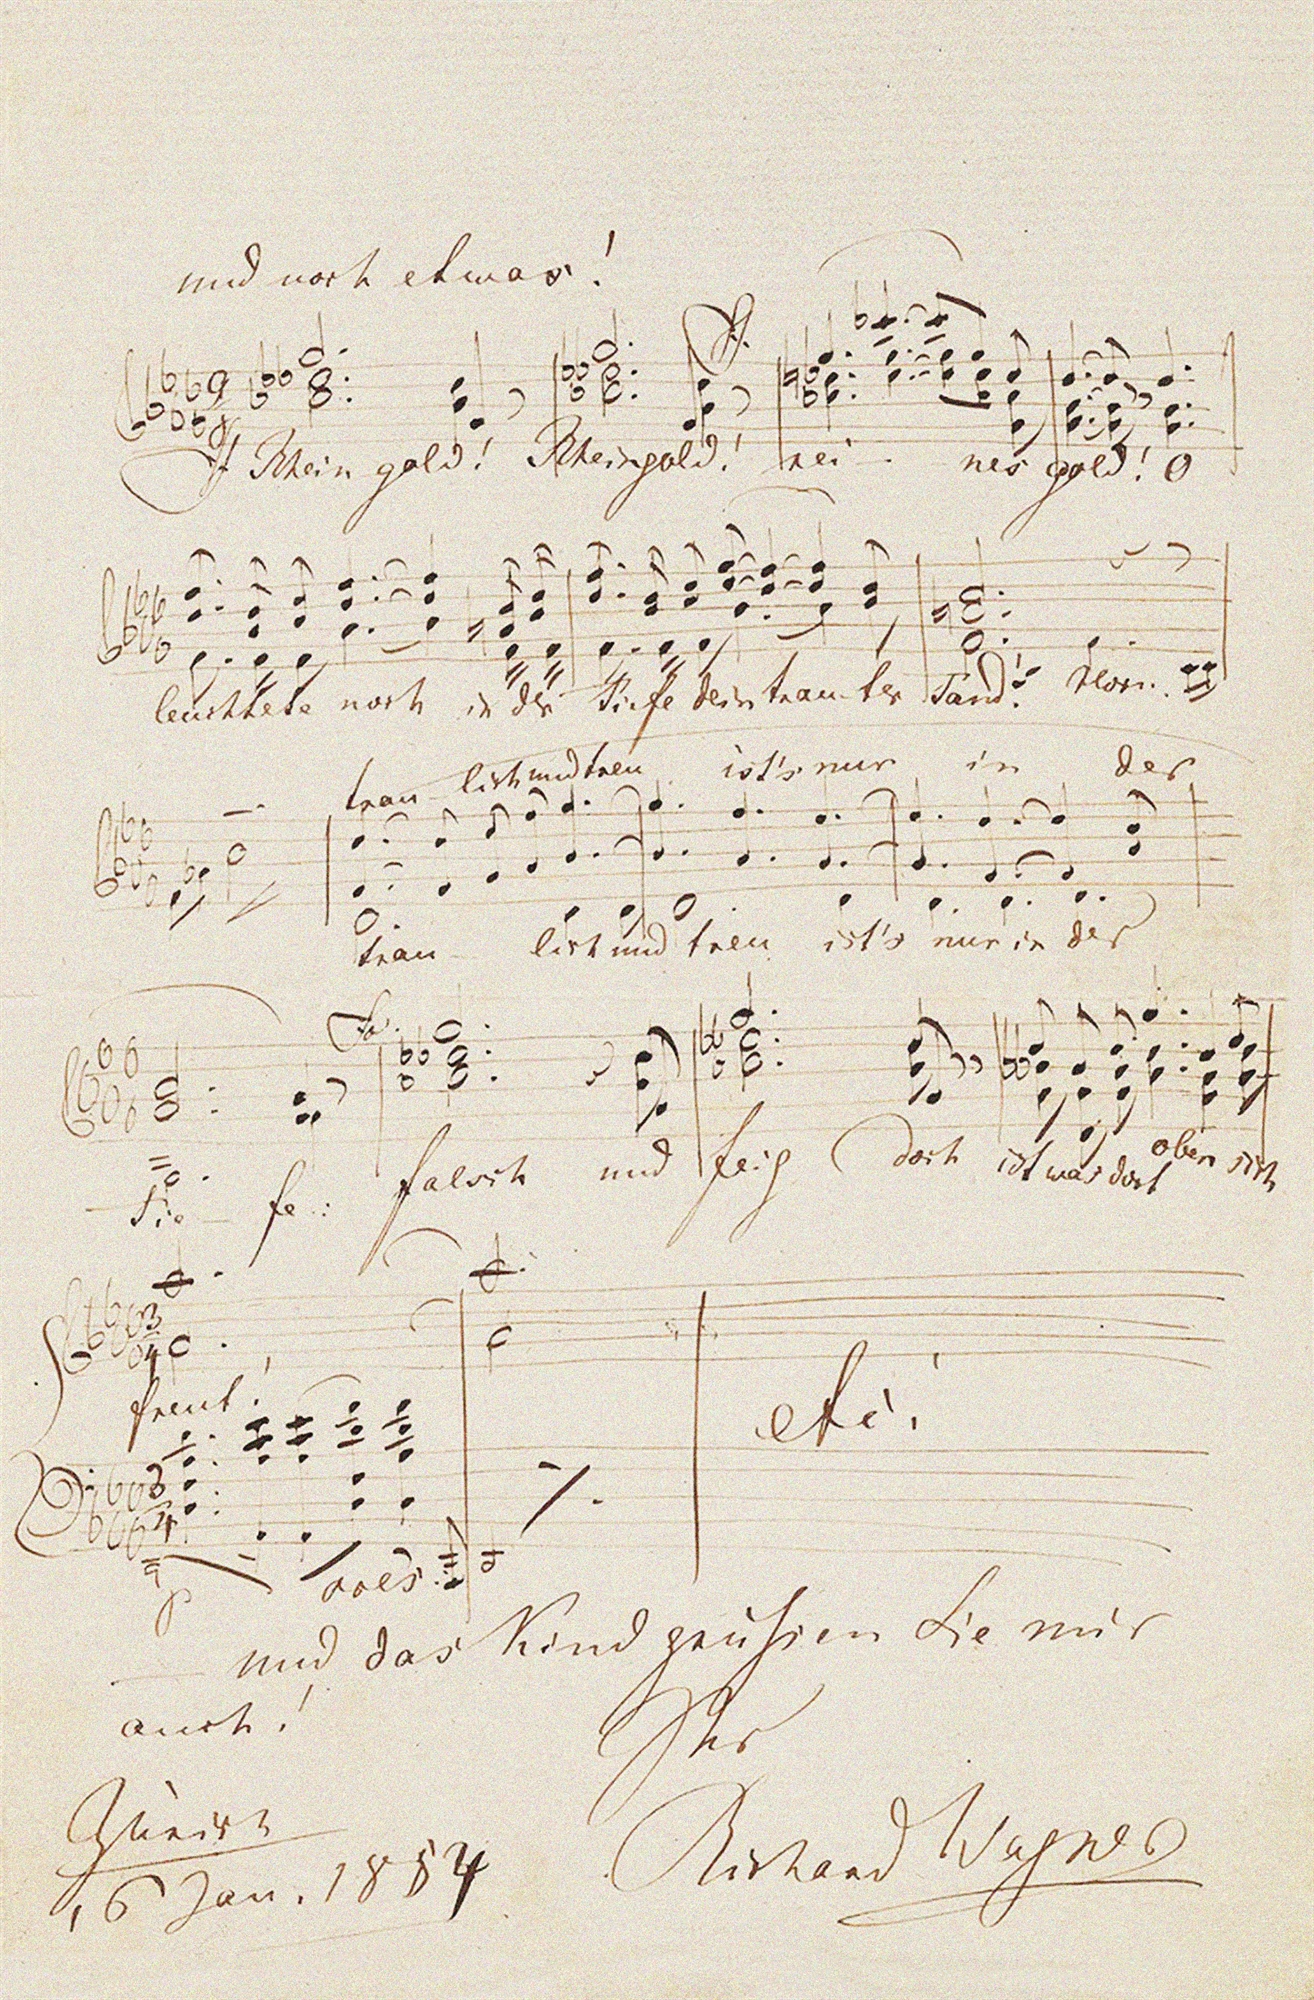 und noch etwas!
Rheingold! Rheingold! rei - nes gold! O
leuchtete noch in der Tiefe dein trauter Tand! Horn.
trau - lich und treu ist's nur in der
trau - lich und treu ist's nur in der
Tie - fe: falsch und feig doch ist was dort oben sich
freut!
etc.
p
und das Kind grüssen Sie mir
auch!
Ihr
Zürich
Richard Wagner
16 Jan. 1854